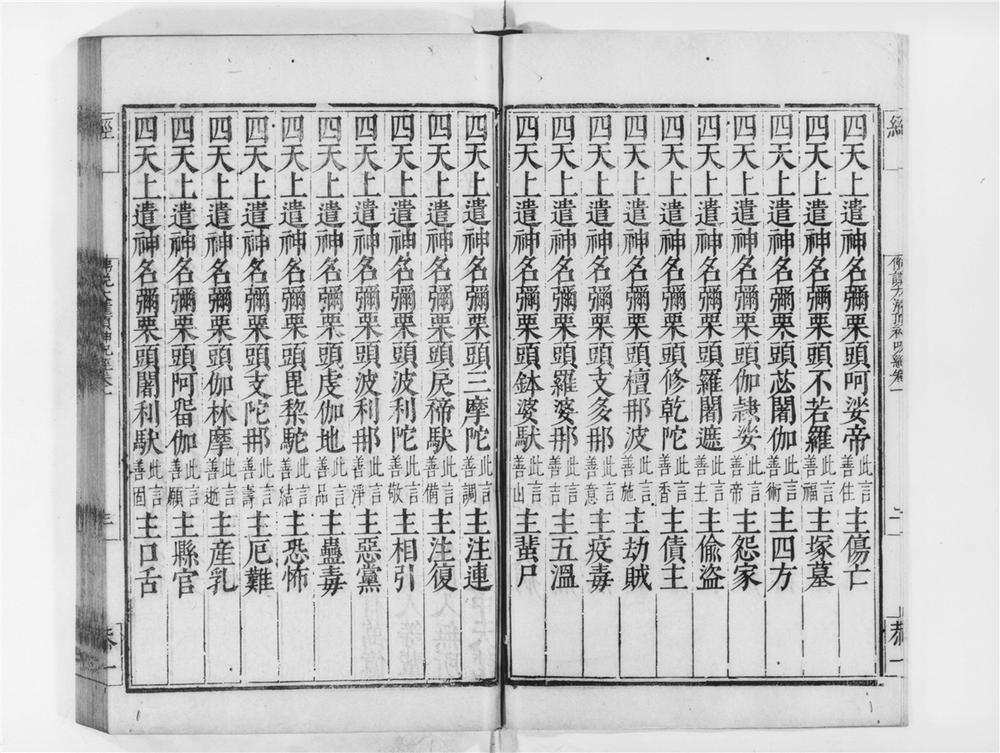 四天上遣神名彌栗頭呵娑帝此言善住主傷亡
四天上遣神名彌栗頭不若羅此言善福主塚墓
四天上遣神名彌栗頭苾闍伽此言善術主四方
四天上遣神名彌栗頭伽隷娑此言善帝主怨家
四天上遣神名彌栗頭羅闍遮此言善主主偷盜
四天上遣神名彌栗頭修乾陀此言善香主債主
四天上遣神名彌栗頭檀那波此言善施主劫賊
四天上遣神名彌栗頭支多那此言善意主疫毒
四天上遣神名彌栗頭羅婆那此言善吉主五溫
四天上遣神名彌栗頭鉢婆馱此言善山主蜚尸
四天上遣神名彌栗頭三摩陀此言善調主注連
四天上遣神名彌栗頭戾禘馱此言善備主注復
四天上遣神名彌栗頭波利陀此言善敬主相引
四天上遣神名彌栗頭波利那此言善淨主惡黨
四天上遣神名彌栗頭虔伽地此言善品主蠱毒
四天上遣神名彌栗頭毘棃駝此言善結主恐怖
四天上遣神名彌栗頭支陀那此言善壽主厄難
四天上遣神名彌栗頭伽林摩此言善逝主產乳
四天上遣神名彌栗頭阿畱伽此言善願主縣官
四天上遣神名彌栗頭闍利馱此言善固主口舌